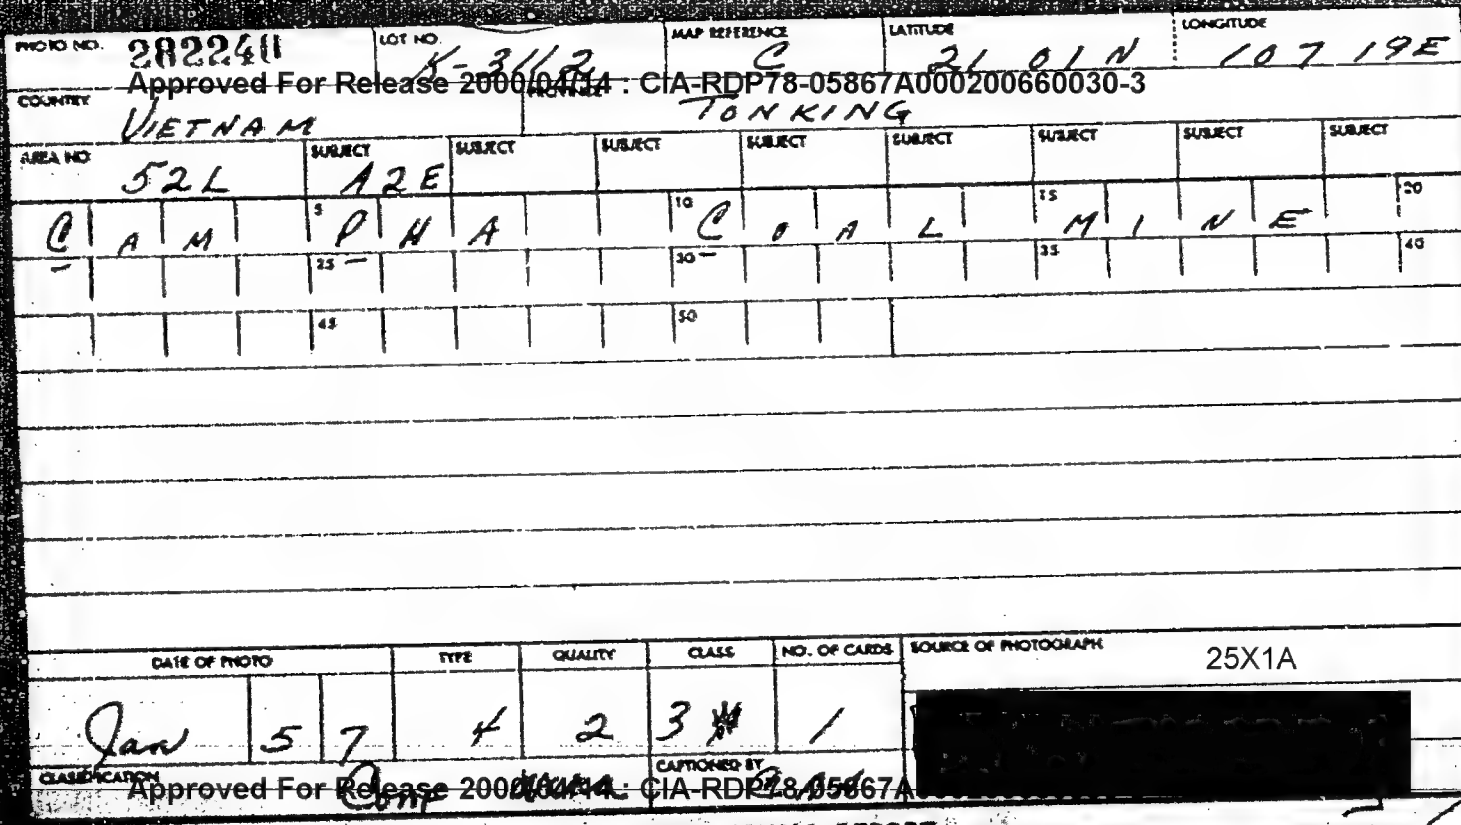 PHOTO NO. 282240 LOT NO. K-3112 MAP REFERENCE C LATITUDE 21 01 N LONGITUDE 107 19E
Approved For Release 2000/04/14 : CIA-RDP78-05867A000200660030-3
COUNTRY VIETNAM PROVINCE TONKING
AREA NO 52L SUBJECT A2E SUBJECT SUBJECT SUBJECT SUBJECT SUBJECT SUBJECT SUBJECT
CAM 5 PHA 10 COAL 15 MINE 20
25 30 35 40
45 50
DATE OF PHOTO TYPE QUALITY CLASS NO. OF CARDS SOURCE OF PHOTOGRAPH
25X1A
Jan 5 7 4 2 3 1
CLASSIFICATION Conf CAPTIONED BY
Approved For Release 2000/04/14 : CIA-RDP78-05867A